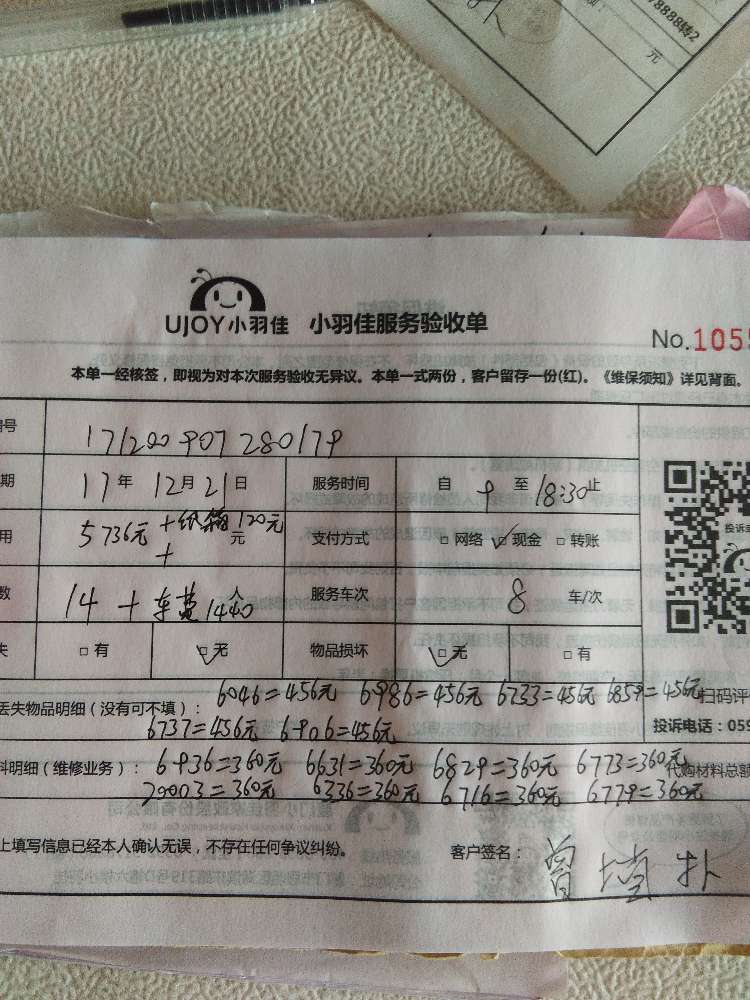 8888转2
元
UJOY小羽佳 小羽佳服务验收单
No.1055
本单一经核签，即视为对本次服务验收无异议。本单一式两份，客户留存一份(红)。《维保须知》详见背面。
号 171200907280179
期 17年 12月21日 服务时间 自 9 至 18:30止
用 5736元+纸箱120元 元 支付方式 □网络 □现金 □转账
+
数 14 + 车费1440 人 服务车次 8 车/次
失 □有 □无 物品损坏 □无 □有
丢失物品明细（没有可不填）： 6046=456元 6986=456元 6733=456元 6859=456元 扫码评
6737=456元 6906=456元 投诉电话：059
料明细（维修业务）： 6936=360元 6631=360元 6829=360元 6773=360元 代购材料总额
20003=360元 6336=360元 6716=360元 6779=360元
上填写信息已经本人确认无误，不存在任何争议纠纷。 客户签名： 曾